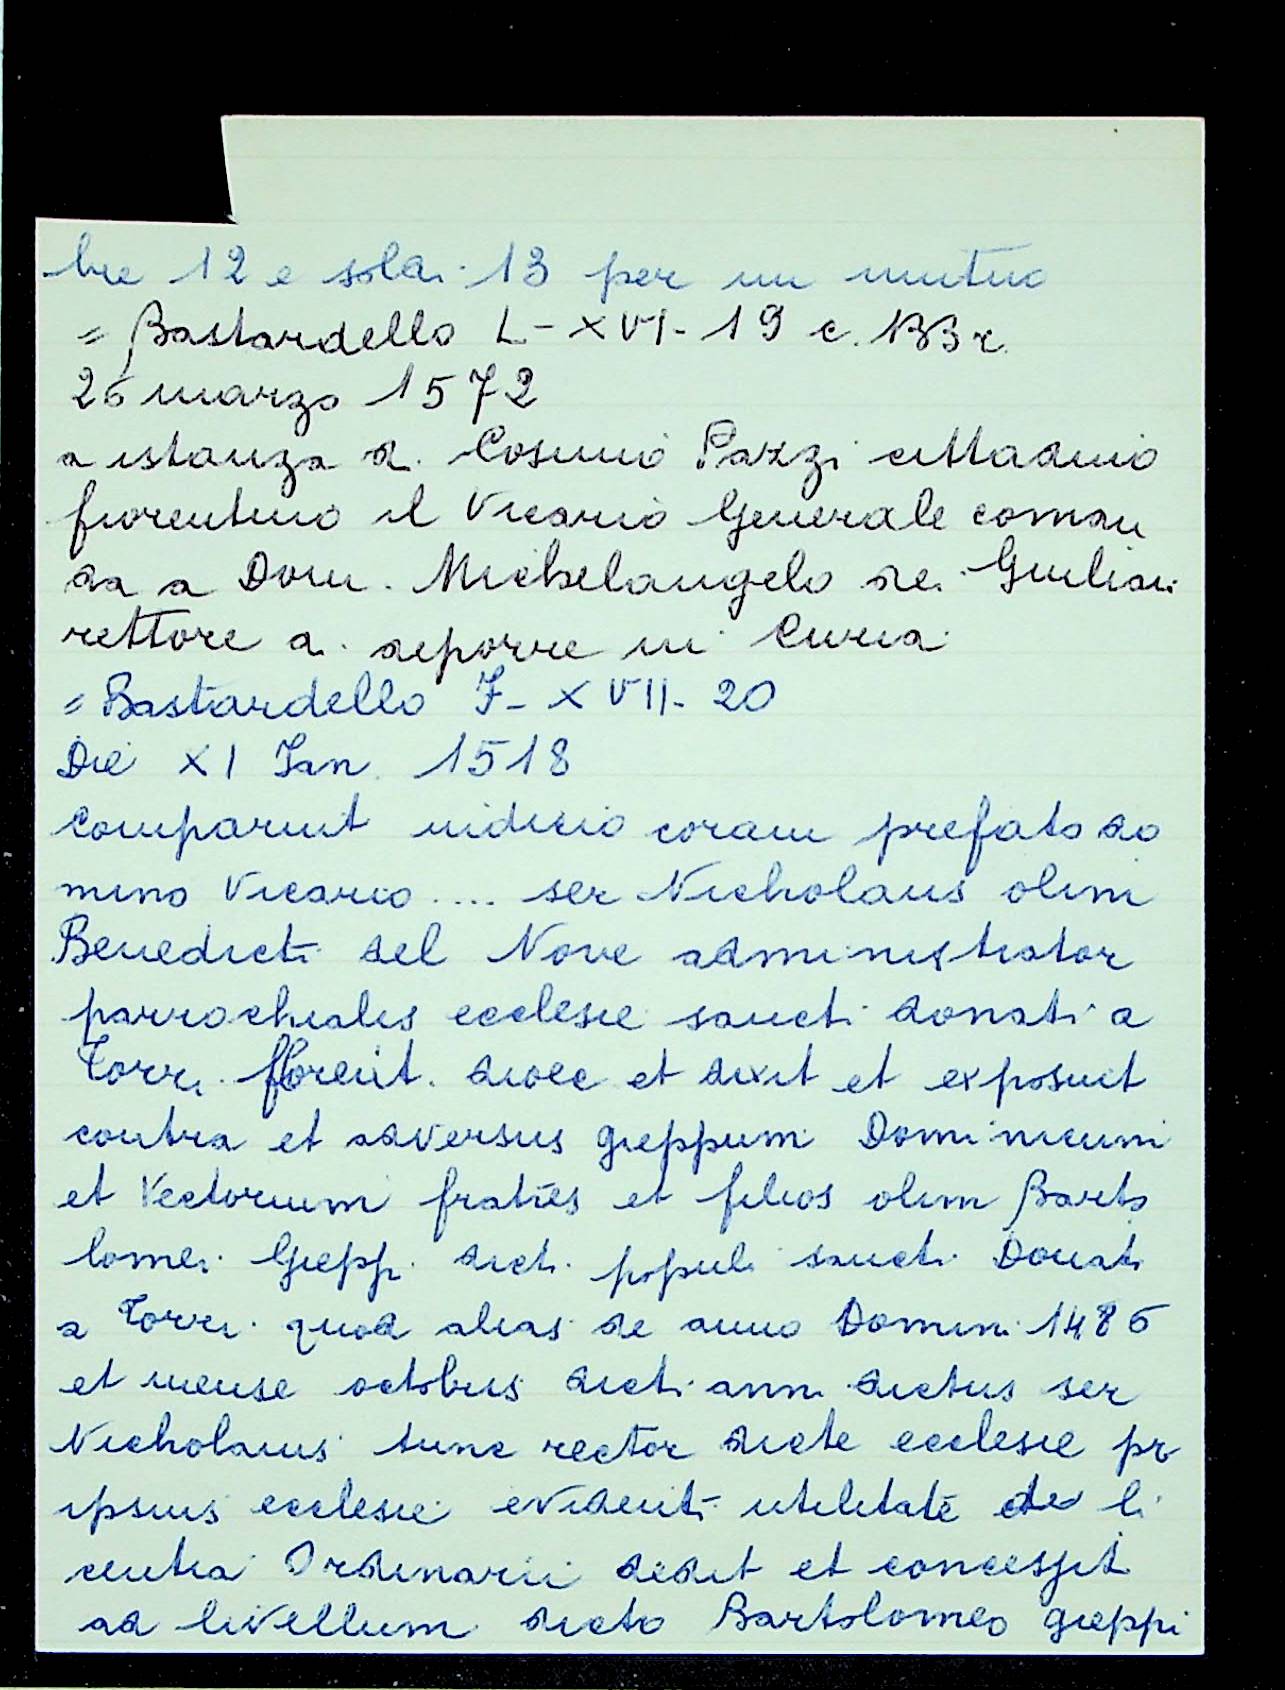 lire 12 e soldi 13 per un mutuo
= Bastardello L-XVI-19 c. 133 r.
26 marzo 1572
a istanza di Cosimo Pazzi cittadino
fiorentino il Vicario Generale coman
da a Dom. Michelangelo dei Giuliani
rettore di deporre in Curia
= Bastardello F-XVII-20
Die XI Jan. 1518
Comparuit iudicio coram prefato do
mino Vicario .... ser Nicholaus olim
Benedicti del Nove administrator
parrochialis ecclesie sancti donati a
Torri florent. dioec et dixit et exposuit
contra et adversus gieppum Dominicum
et Vectorium fratres et filios olim Barto
lomei Giepp. dicti populi sancti Donati
a Torri quod alias de anno Domini 1486
et mense octobris dicti anni dictus ser
Nicholaus tunc rector dicte ecclesie pr
ipsius ecclesie evidenti utilitate de li
centia Ordinarii dedit et concessit
ad livellum dicto Bartolomeo gieppi